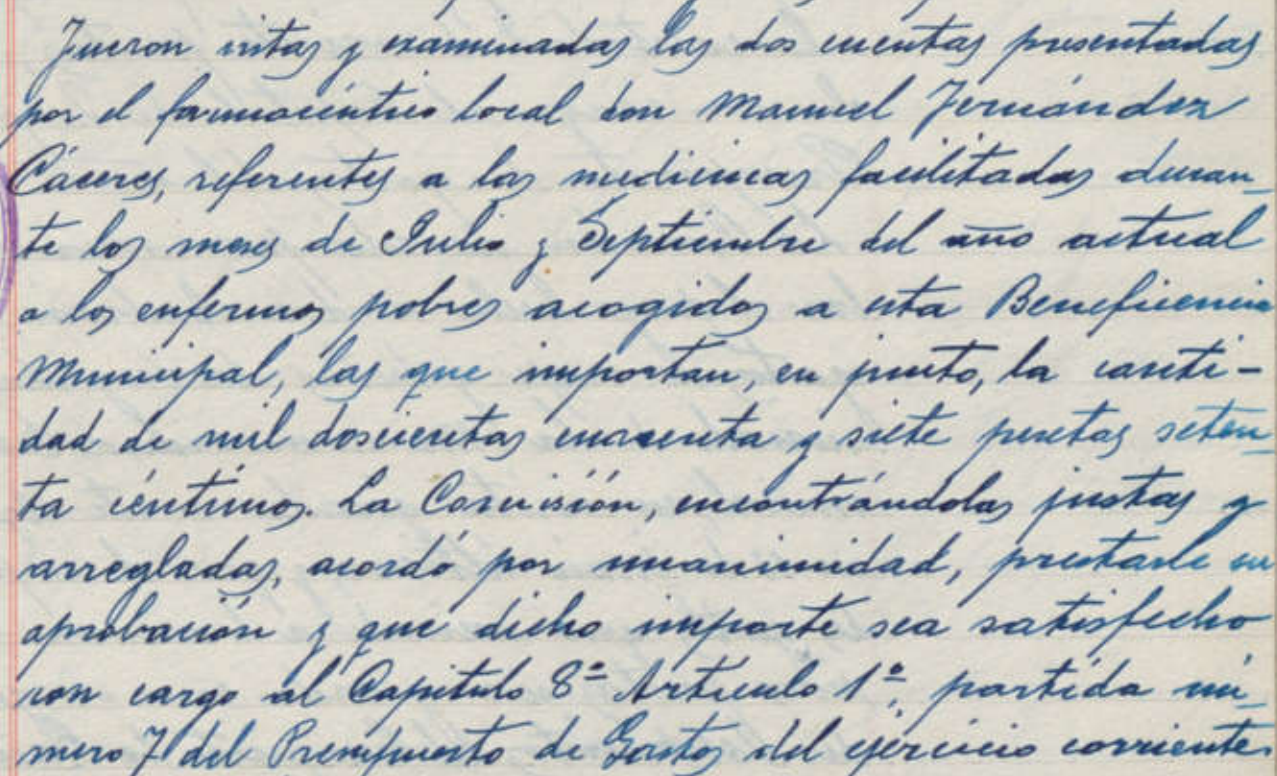 Fueron vistas y examinadas las dos cuentas presentadas
por el farmacéutico local don Manuel Fernández
Cáceres, referentes a las medicinas facilitadas duran-
te los meses de Julio y Septiembre del año actual
a los enfermos pobres acogidos a esta Beneficencia
Municipal, las que importan, en junto, la canti-
dad de mil doscientas cuarenta y siete pesetas seten-
ta céntimos. La Comisión, encontrándolas justas y
arregladas, acordó por unanimidad, prestarle su
aprobación y que dicho importe sea satisfecho
con cargo al Capítulo 8º Artículo 1º, partida nú-
mero 7 del Presupuesto de Gastos del ejercicio corriente.